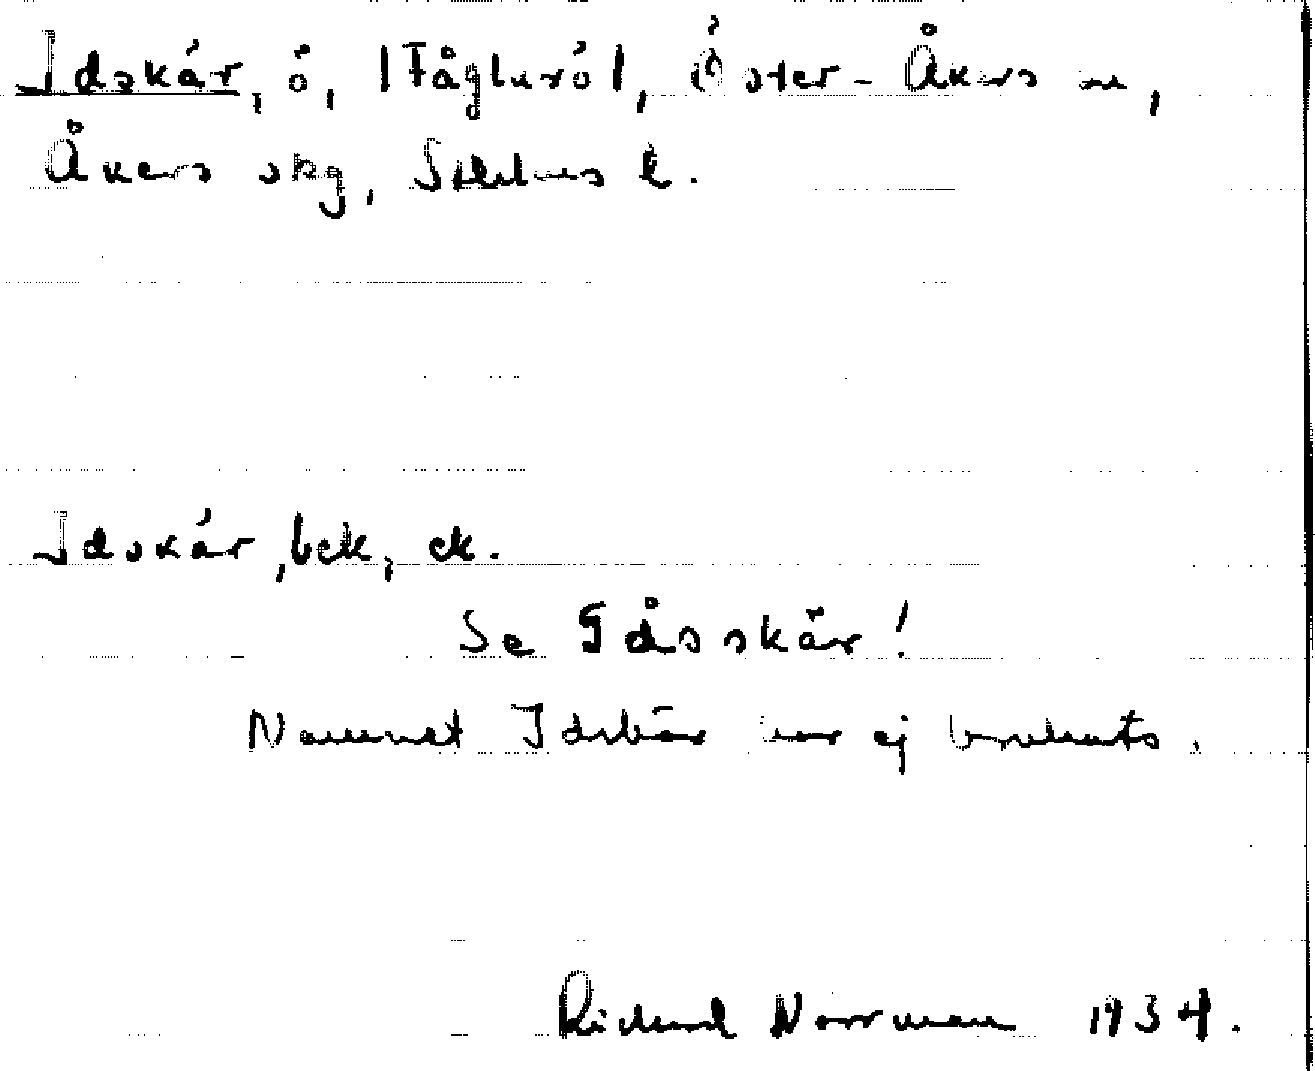 Idskär, ö, /Fågelrö/, Öster-Åkers sn,
Åkers skg, Sthlms l.
Idskär, bek, ek.
Se Gåsskär!
Namnet Idskär har ej
Rickard Norrman 1934.